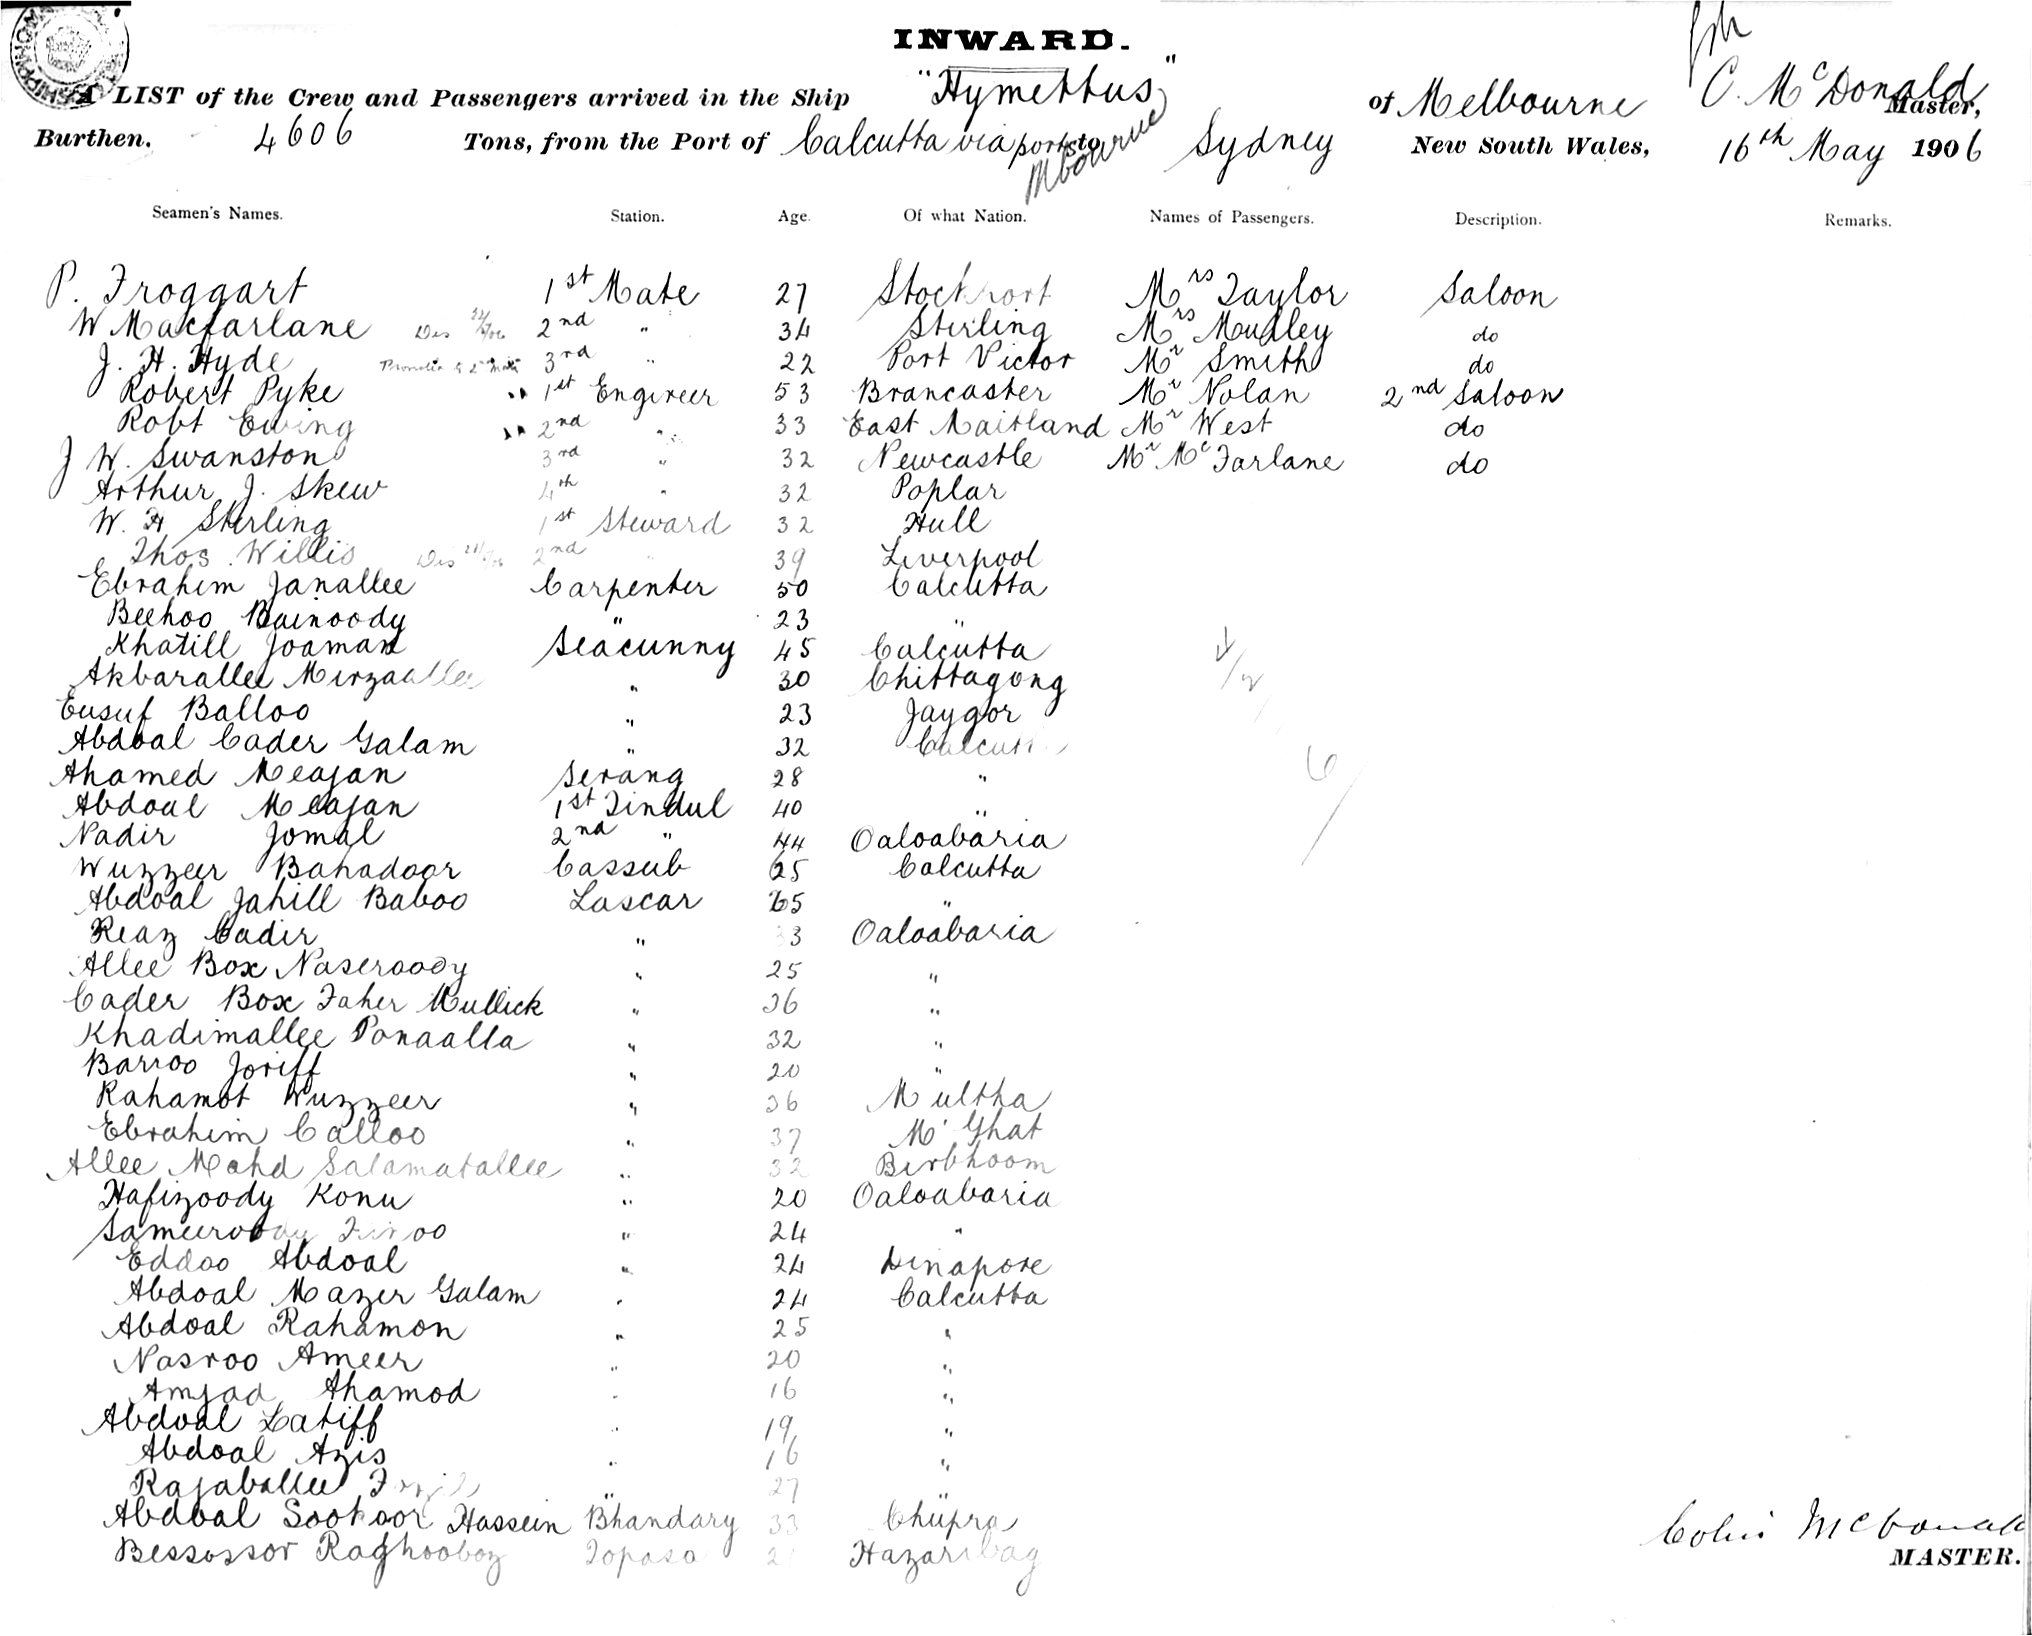 INWARD.
A LIST of the Crew and Passengers arrived in the Ship "Hymettus" of Melbourne C. McDonald Master,
Burthen. 4606 Tons, from the Port of Calcutta via ports to Sydney New South Wales, 16th May 1906
Mbourne
Seamen's Names. Station. Age. Of what Nation. Names of Passengers. Description. Remarks.
P. Froggart 1st Mate 27 Stockport Mrs Taylor Saloon
W Macfarlane Dis 2nd " 34 Stirling Mrs Mudley do
J. H. Hyde 3rd " 22 Port Victor Mr Smith do
Robert Pyke 1st Engineer 53 Brancaster Mr Nolan 2nd Saloon
Robt Ewing 2nd " 33 East Maitland Mr West do
J W. Swanston 3rd " 32 Newcastle Mr McFarlane do
Arthur J. Skew 4th " 32 Poplar
W. H Stirling 1st Steward 32 Hull
Thos. Willis Dis 2nd " 39 Liverpool
Ebrahim Janallee Carpenter 50 Calcutta
Beehoo Bainoody " 23 "
Khatill Joaman Seacunny 45 Calcutta
Akbarallee Mirzaallee " 30 Chittagong
Eusuf Balloo " 23 Jaygor
Abdoal Cader Galam " 32 Calcutt
Ahamed Meajan Serang 28 "
Abdoal Meajan 1st Tindul 40 "
Nadir Jomal 2nd " 44 Oaloabaria
Wuzzeer Bahadoor Cassub 25 Calcutta
Abdoal Jahill Baboo Lascar 65 "
Reaz Cadir " 33 Oaloabaria
Allee Box Naseroody " 25 "
Cader Box Faher Mullick " 36 "
Khadimallee Ponaalla " 32 "
Barroo Joriff " 20 "
Rahamot Wuzzeer " 36 Multha
Ebrahim Calloo " 37 M' Ghat
Allee Mahd Salamatallee " 32 Birbhoom
Hafizoody Konu " 20 Oaloabaria
Sameeroody " 24 "
Eddoo Abdoal " 24 Dinapore
Abdoal Mazer Galam " 24 Calcutta
Abdoal Rahamon " 25 "
Nasroo Ameer " 20 "
Amjad Ahamod " 16 "
Abdoal Latiff " 19 "
Abdoal Azis " 16 "
Rajaballee " 27 "
Abdoal Sookoor Hassein Bhandary 33 Chupra
Bessessor Raghooboz Topasa 2 Hazaribag
Colin McDonald
MASTER.